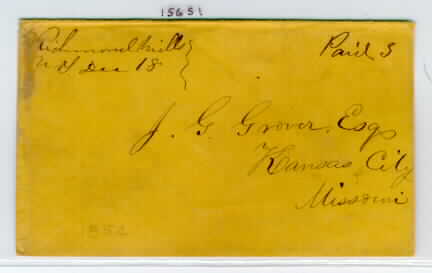 15651
Richmond Mills
NY Dec 18
Paid 3
J. G. Grover, Esq
Kansas City
Missouri